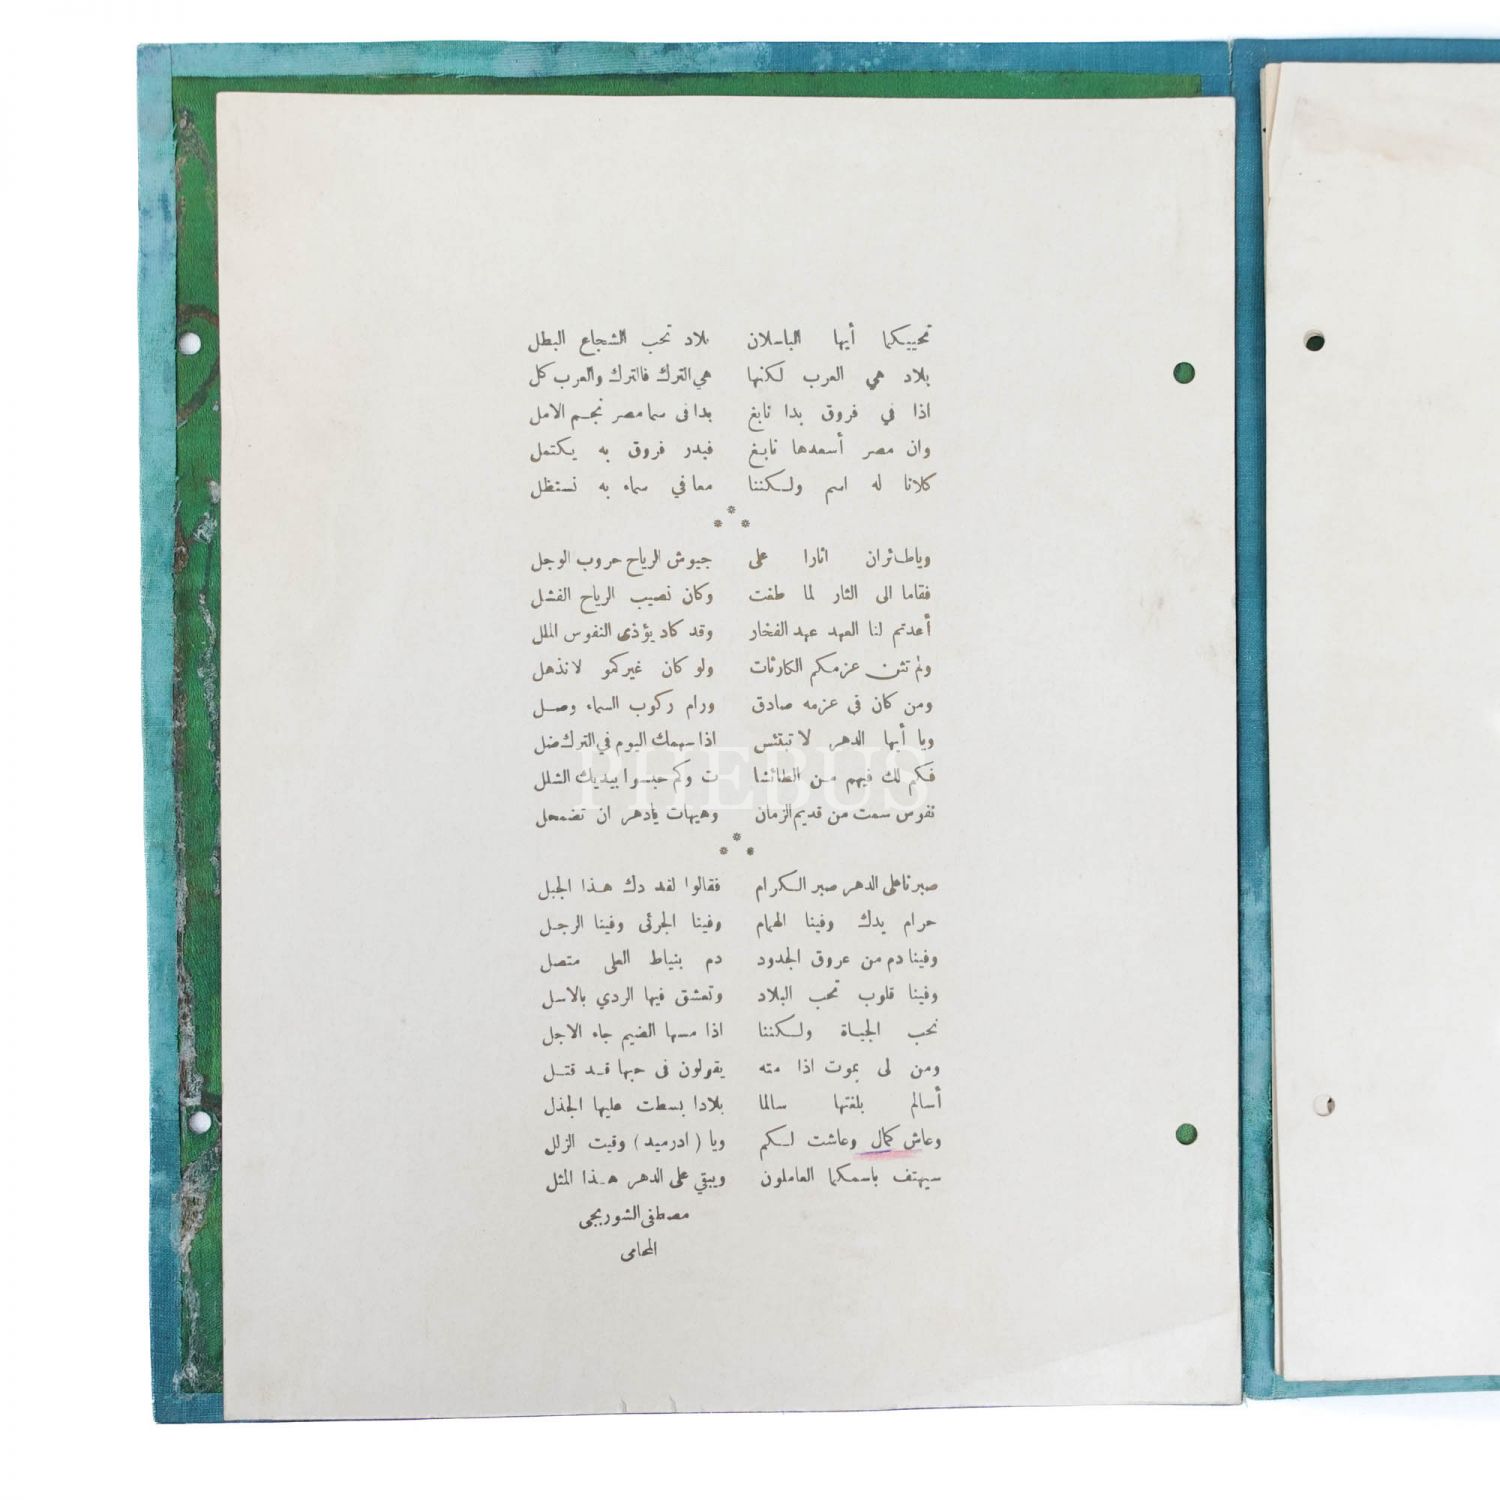 تحييكما أيها الباسلان بلاد تحب الشجاع البطل
بلاد هي العرب لكنها هي الترك فالترك والعرب كل
اذا في فروق بدا نابغ بدا فى سما مصر نجم الامل
وان مصر أسعدها نابغ فبدر فروق به يكتمل
كلانا له اسم ولكننا معا في سماء به نستظل
وياطائران اثارا على جيوش الرياح حروب الوجل
فقاما الى الثار لما طغت وكان نصيب الرياح الفشل
أعدتم لنا العهد عهد الفخار وقد كاد يؤذى النفوس الملل
ولم تثن عزمكم الكارثات ولو كان غيركمو لانذهل
ومن كان فى عزمه صادق ورام ركوب السماء وصل
ويا أيها الدهر لا تبتئس اذا سهمك اليوم في الترك ضل
فكم لك فيهم من الطائشا ت وكم حبسوا بيديك الشلل
نفوس سمت من قديم الزمان وهيهات يادهر ان تضمحل
صبرنا على الدهر صبر الكرام فقالوا لقد دك هذا الجبل
حرام يدك وفينا الهمام وفينا الجرئى وفينا الرجل
وفينا دم من عروق الجدود دم بنياط العلى متصل
وفينا قلوب تحب البلاد وتعشق فيها الردي بالاسل
نحب الحياة ولكننا اذا مسها الضيم جاء الاجل
ومن لى بموت اذا مته يقولون فى حبها قد قتل
أسالم بلغتها سالما بلادا بسطت عليها الجذل
وعاش كمال وعاشت لكم ويا (ادرميد) وقيت الزلل
سيهتف باسمكما العاملون ويبقي على الدهر هذا المثل
مصطفى الشوربجى
المحامى
PHEBUS